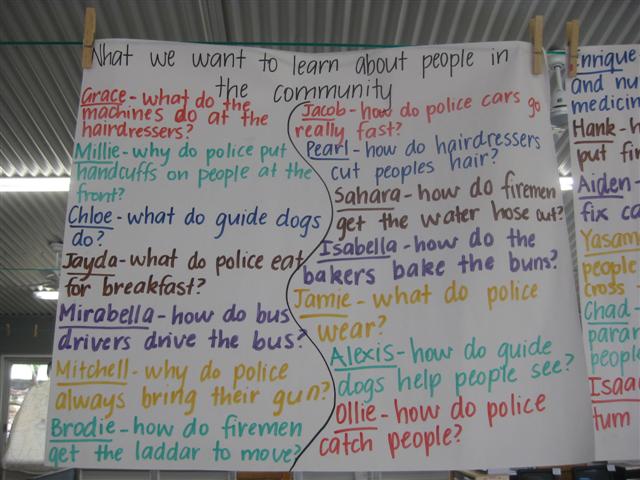 What we want to learn about people in
the community
Grace - what do the
machines do at the
hairdressers?
Millie - why do police put
handcuffs on people at the
front?
Chloe - what do guide dogs
do?
Jayda - what do police eat
for breakfast?
Mirabella - how do bus
drivers drive the bus?
Mitchell - why do police
always bring their gun?
Brodie - how do firemen
get the laddar to move?
Jacob - how do police cars go
really fast?
Pearl - how do hairdressers
cut peoples hair?
Sahara - how do firemen
get the water hose out?
Isabella - how do the
bakers bake the buns?
Jamie - what do police
wear?
Alexis - how do guide
dogs help people see?
Ollie - how do police
catch people?
Enrique
and nu
medicin
Hank - h
put fir
Aiden -
fix ca
Yasam
people
cross -
Chad -
parar
people
Isaa
turn